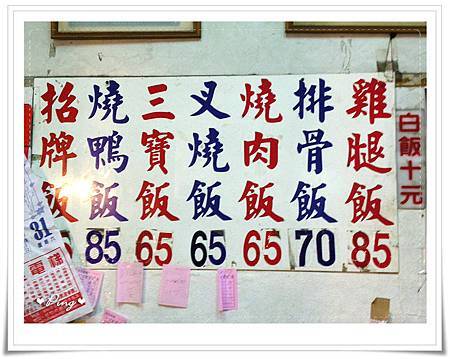 雞腿飯 85
排骨飯 70
燒肉飯 65
叉燒飯 65
三寶飯 65
燒鴨飯 85
招牌飯
白飯十元
31
星期六
電樣
Ping